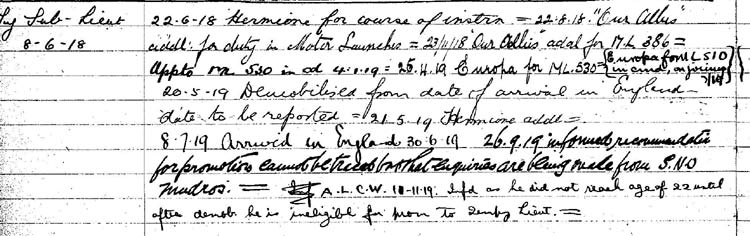 Ty Sub-Lieut 22-6-18 Hermione for course of instrn = 22.8.18. "Our Allies"
8-6-18 addl: for duty in Motor Launches = 23/11/18 Our Allies addl for M.L 386 =
Appts ML 530 in cd 4.1.19 = 25.4.19 Europa for ML.530 = {Europa for ML 510 in cmd, on joining 7/19}
20-5-19 Demobilised from date of arrival in England -
date to be reported = 21.5.19 Hermione addl =
8.7.19 Arrived in England 30.6.19 26.9.19 informed recommendation
for promotion cannot be traced but that enquiries are being made from S.N.O
Mudros. = A.L.C.W. 10-11-19. Ifd as he did not reach age of 22 until
after demob. he is ineligible for prom to Tempy Lieut. =